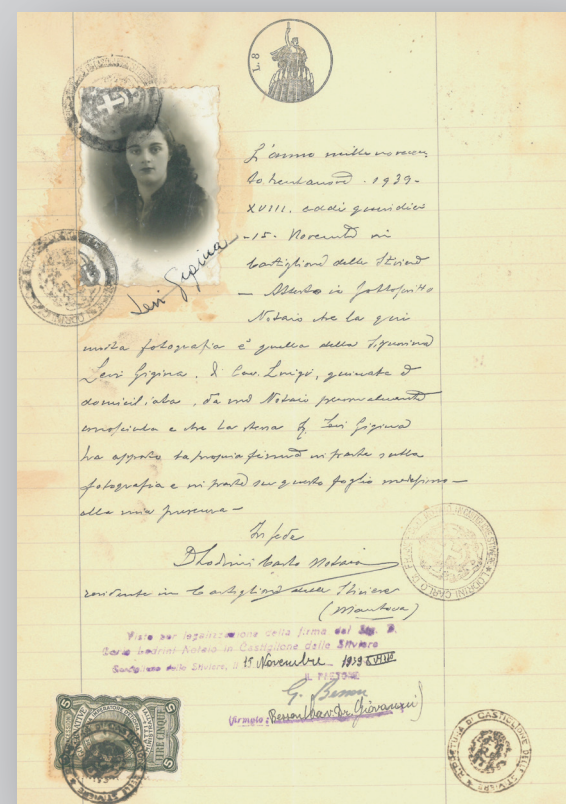 L. 8
L'anno millenovecen
totrentanove - 1939 -
XVIII. addì quindici
- 15 - Novembre in
Castiglione delle Stiviere
— Attesto io sottoscritto
Notaio che la qui
unita fotografia è quella della Signorina
Levi Gigina, di Cav. Luigi, quì nata e
domiciliata, da me Notaio personalmente
conosciuta e che la stessa Levi Gigina
ha apposto la propria firma in parte sulla
fotografia e in parte su questo foglio medesimo —
alla mia presenza —
Levi Gigina
In fede
Lodrini Carlo Notaio
residente in Castiglione delle Stiviere
(Mantova)
Visto per legalizzazione della firma del Sig. D.
Carlo Lodrini Notaio in Castiglione delle Stiviere
Castiglione delle Stiviere, li 15 Novembre 1939 XVIII
IL PRETORE
(firmato
LIRE CINQUE
5
5
PRETURA DI CASTIGLIONE DELLE STIVIERE